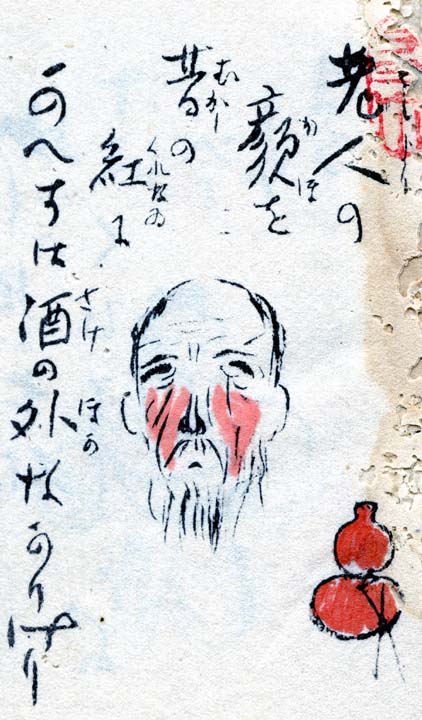 老人の
かほ
顔を
むかし
昔の
くれなゐ
紅に
さけ ほか
かへすは酒の外なかりけり